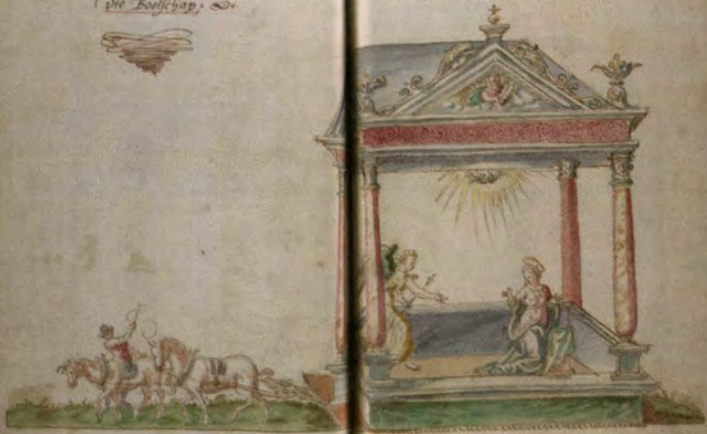 Die Boetschap.